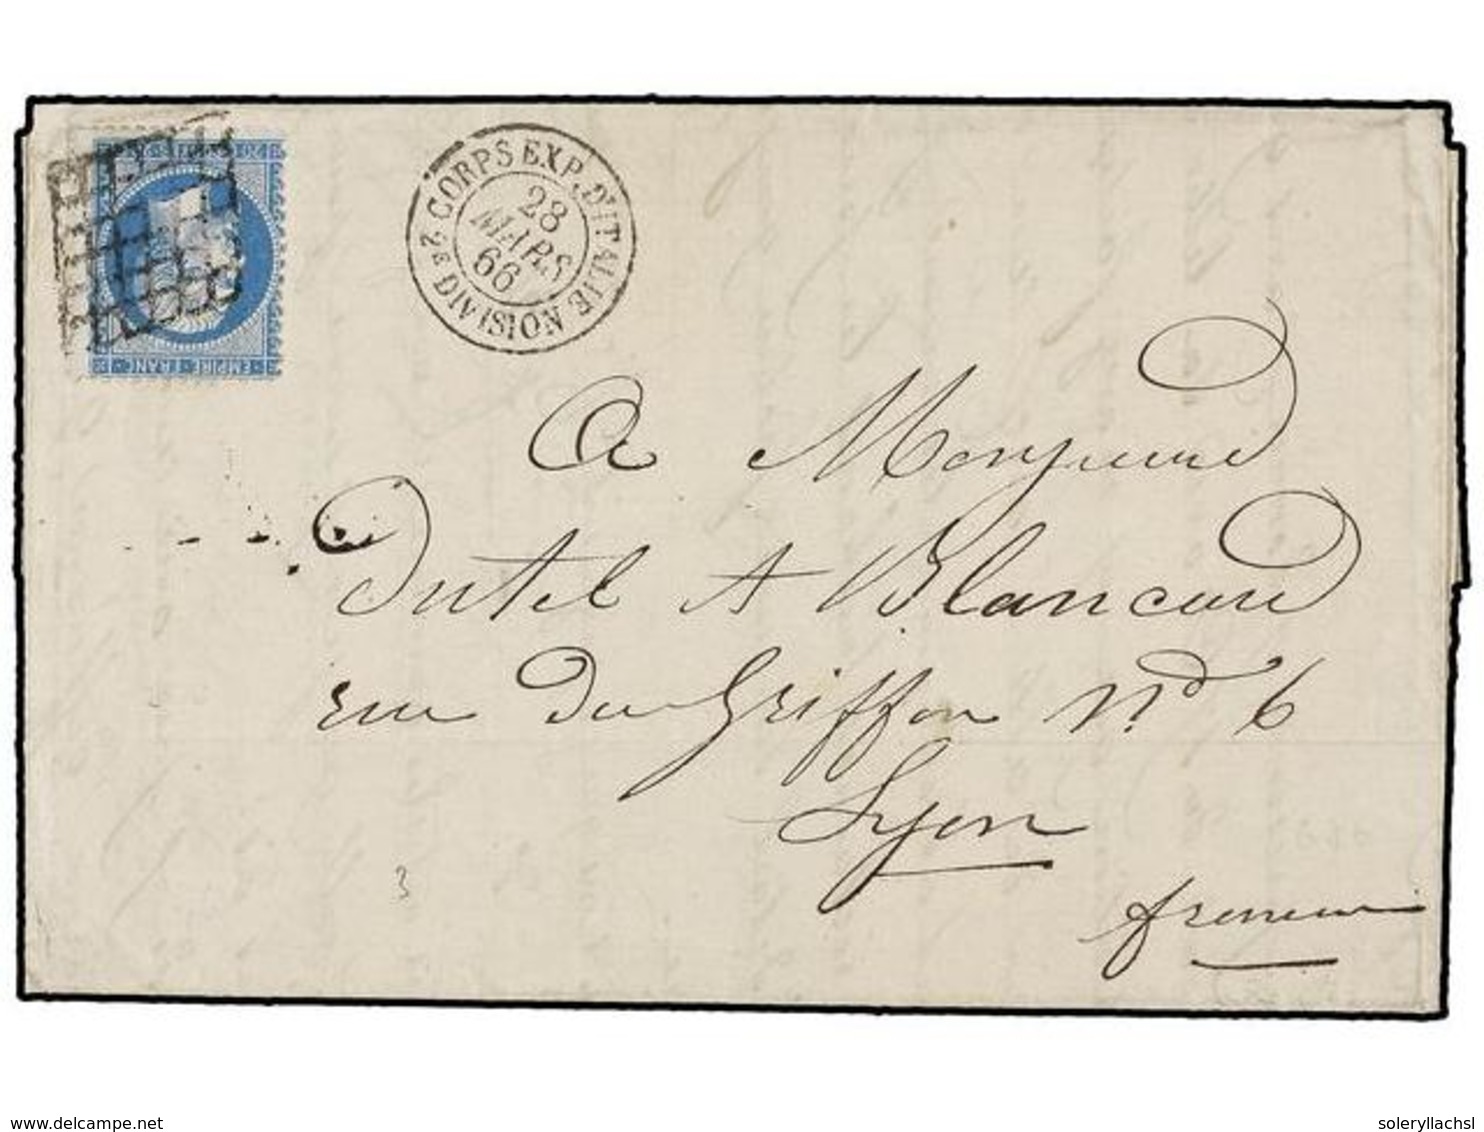 CORPS EXP. D'ITALIE
2E DIVISION
28
MARS
66
EMPIRE · FRANC ·
A
Dutel & Blancard
rue du Griffon No 6
Lyon
3
www.delcampe.net
soleryllachsl